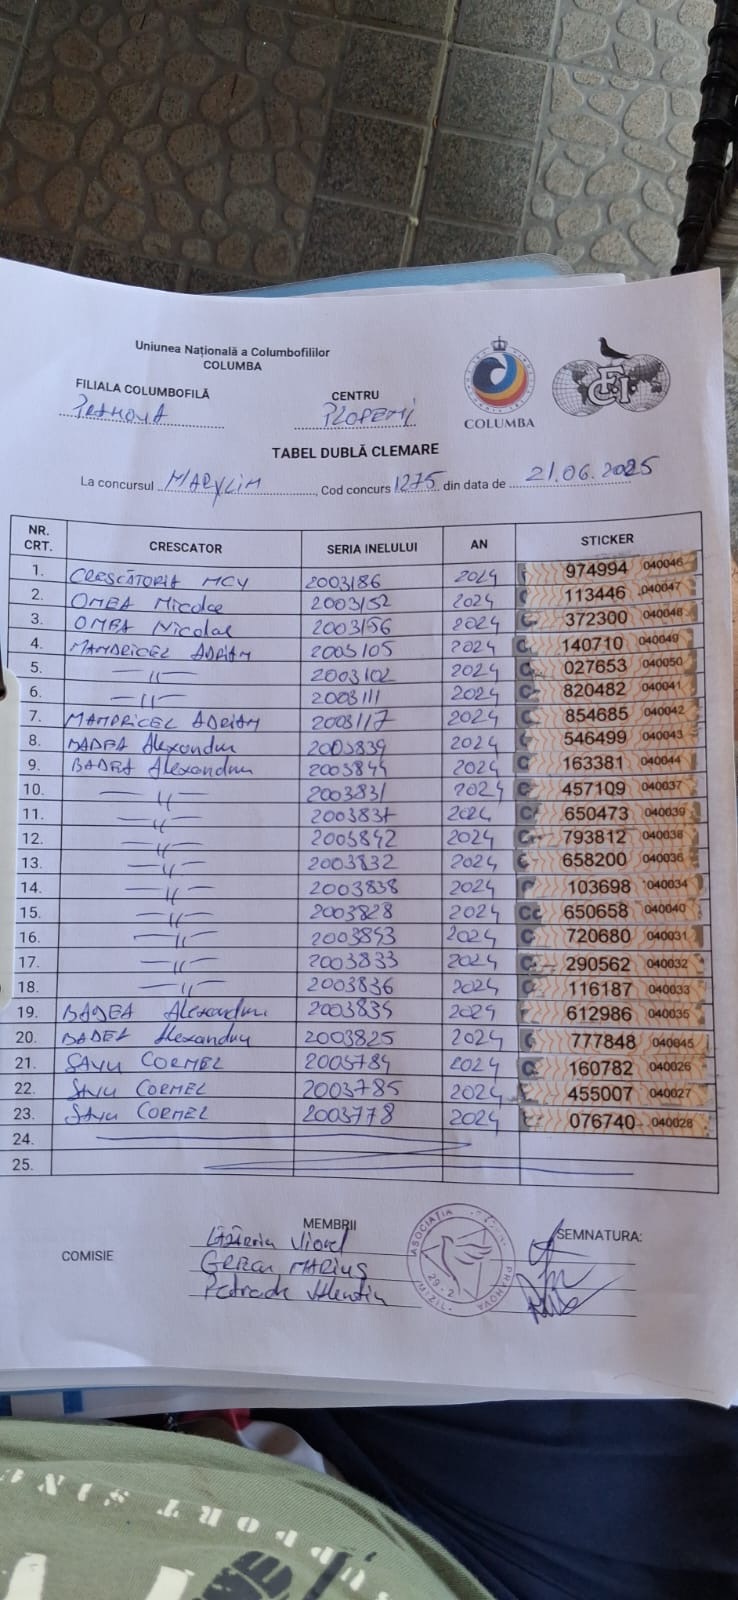 Uniunea Națională a Columbofililor
COLUMBA
FILIALA COLUMBOFILĂ
PRAHOVA
CENTRU
PLOPENI
COLUMBA
FCI
TABEL DUBLĂ CLEMARE
La concursul MARYLIM, Cod concurs 1275 din data de 21.06.2025
NR. CRT. CRESCATOR SERIA INELULUI AN STICKER
1. CRESCĂTORIA MCY 2003186 2024 974994 040046
2. OMEA Nicolae 2003152 2024 113446 040047
3. OMEA Nicolae 2003156 2024 372300 040048
4. MANDRICEL ADRIAN 2003105 2024 140710 040049
5. —〃— 2003102 2024 027653 040050
6. —〃— 2003111 2024 820482 040041
7. MANDRICEL ADRIAN 2003117 2024 854685 040042
8. BADEA Alexandru 2003839 2024 546499 040043
9. BADEA Alexandru 2003844 2024 163381 040044
10. —〃— 2003831 2024 457109 040037
11. —〃— 2003837 2024 650473 040039
12. —〃— 2003842 2024 793812 040038
13. —〃— 2003832 2024 658200 040036
14. —〃— 2003838 2024 103698 040034
15. —〃— 2003828 2024 650658 040040
16. —〃— 2003843 2024 720680 040031
17. —〃— 2003833 2024 290562 040032
18. —〃— 2003836 2024 116187 040033
19. BADEA Alexandru 2003835 2024 612986 040035
20. BADEA Alexandru 2003825 2024 777848 040045
21. SAVU CORNEL 2003784 2024 160782 040026
22. SAVU CORNEL 2003785 2024 455007 040027
23. SAVU CORNEL 2003778 2024 076740 040028
24.
25.
COMISIE
MEMBRII
SEMNATURA:
Viorel
MARIUS
Valentin
ASOCIAȚIA
PRAHOVA
MIZIL
SUPPORT SINC